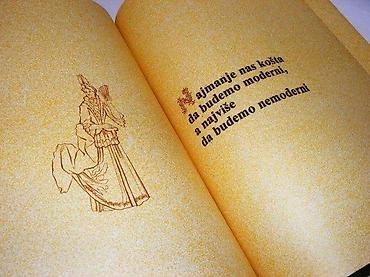 Najmanje nas košta
da budemo moderni,
a najviše
da budemo nemoderni